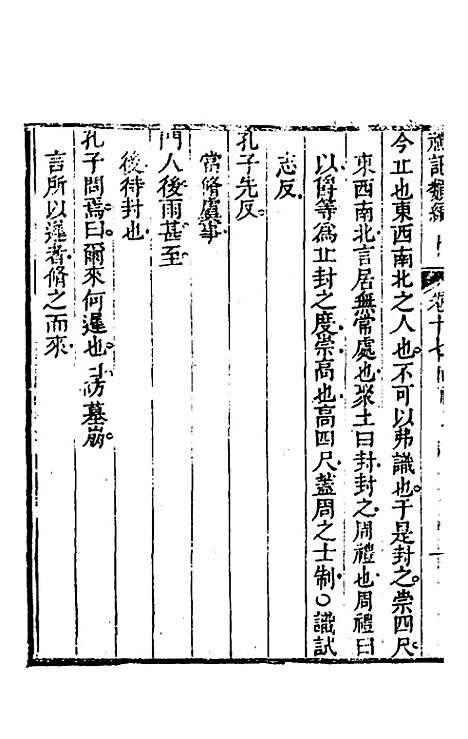 禮記類編 卷十七
今丘也東西南北之人也不可以弗識也于是封之崇四尺
東西南北言居無常處也聚土曰封封之周禮也周禮曰
以爵等爲丘封之度崇高也高四尺蓋周之士制○識試
志反
孔子先反
當脩虞事
門人後雨甚至
後待封也
孔子問焉曰爾來何遲也曰防墓崩
言所以遲者脩之而來